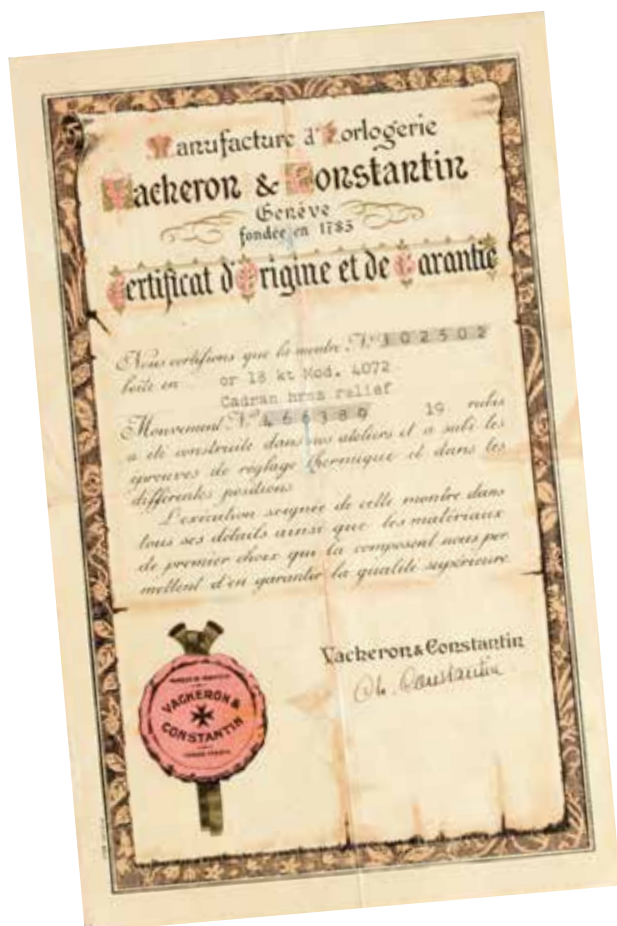 Manufacture d'Horlogerie
Vacheron & Constantin
Genève
fondée en 1785
Certificat d'Origine et de Garantie
Nous certifions que la montre N° 302502
boîte en or 18 kt Mod. 4072
Cadran hres relief
Mouvement N° 466389 19 rubis
a été construite dans nos ateliers et a subi les
épreuves de réglage thermique et dans les
différentes positions
L'exécution soignée de cette montre dans
tous ses détails ainsi que les matériaux
de premier choix qui la composent nous per
mettent d'en garantir la qualité supérieure
Vacheron & Constantin
Ch. Constantin
VACHERON &
CONSTANTIN